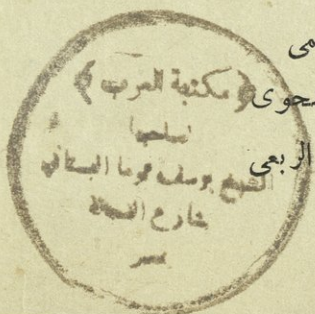 مى
حوى
الربعى
﴿ مكتبة العرب ﴾
لصاحبها
الشيخ يوسف توما البستاني
شارع الفجالة
مصر